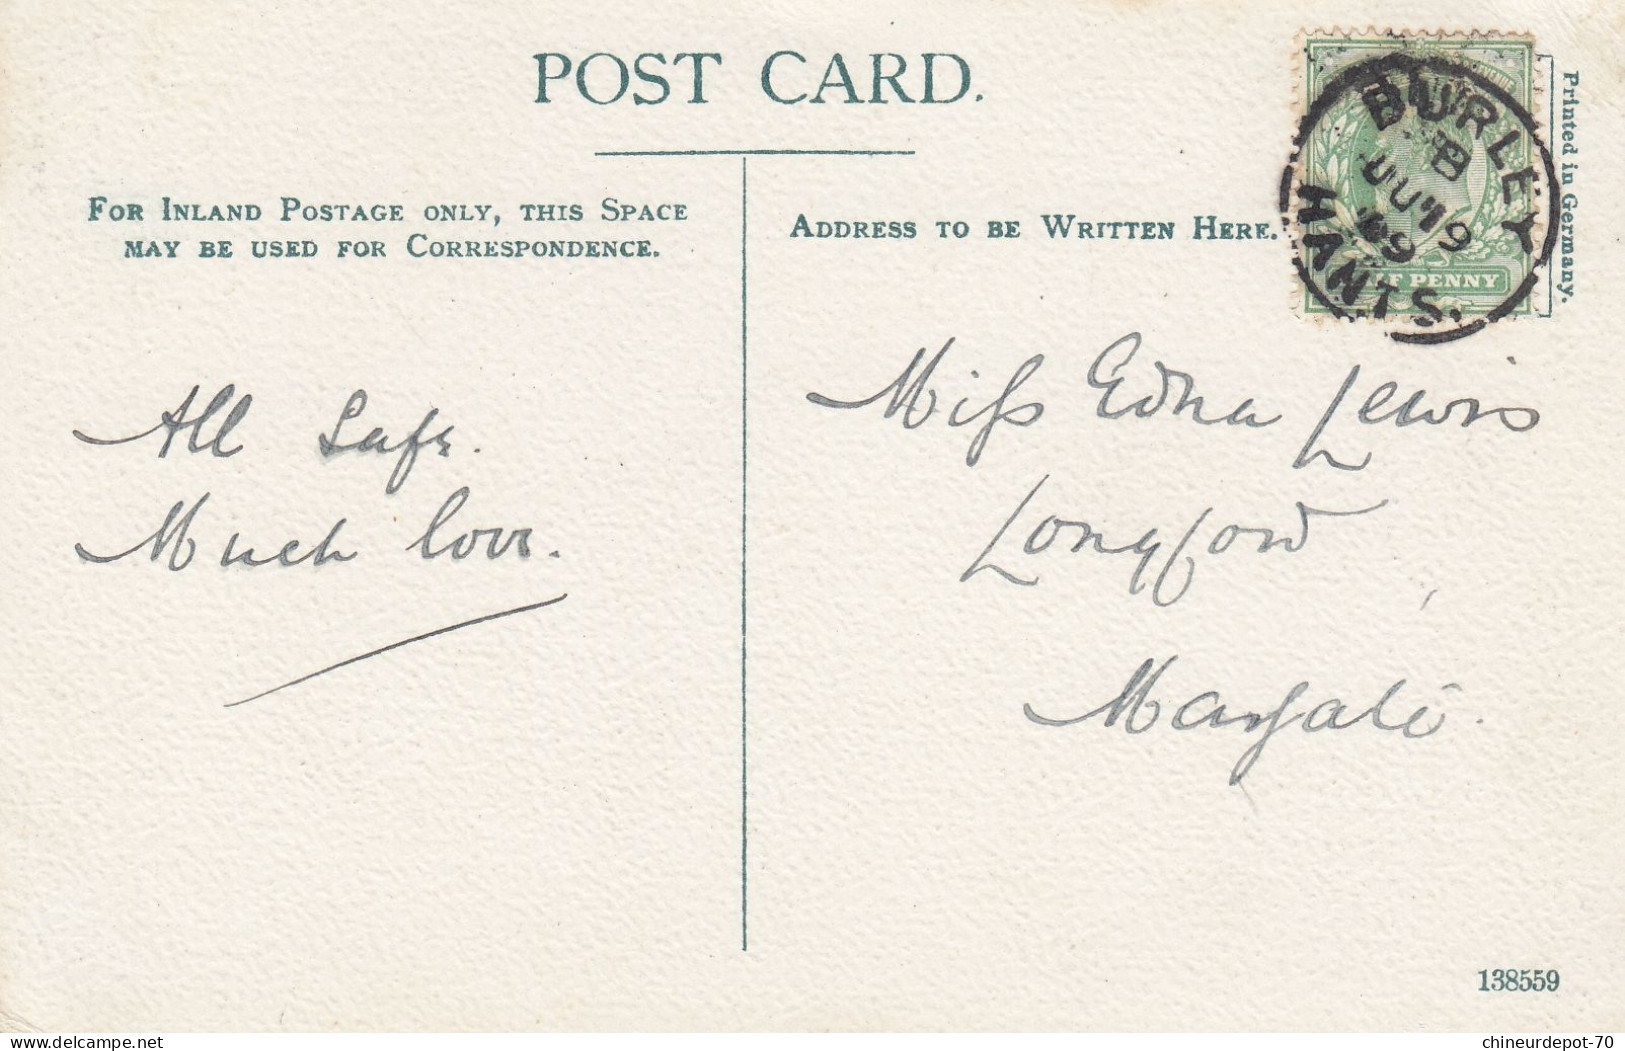 POST CARD.
FOR INLAND POSTAGE ONLY, THIS SPACE
MAY BE USED FOR CORRESPONDENCE.
ADDRESS TO BE WRITTEN HERE.
Printed in Germany.
BURLEY
B
JU 19
09
HANTS.
HALF PENNY
All Safe.
Much love.
Miss Edna Lewis
Longford
Margate.
138559
delcampe.net
chineurdepot-70